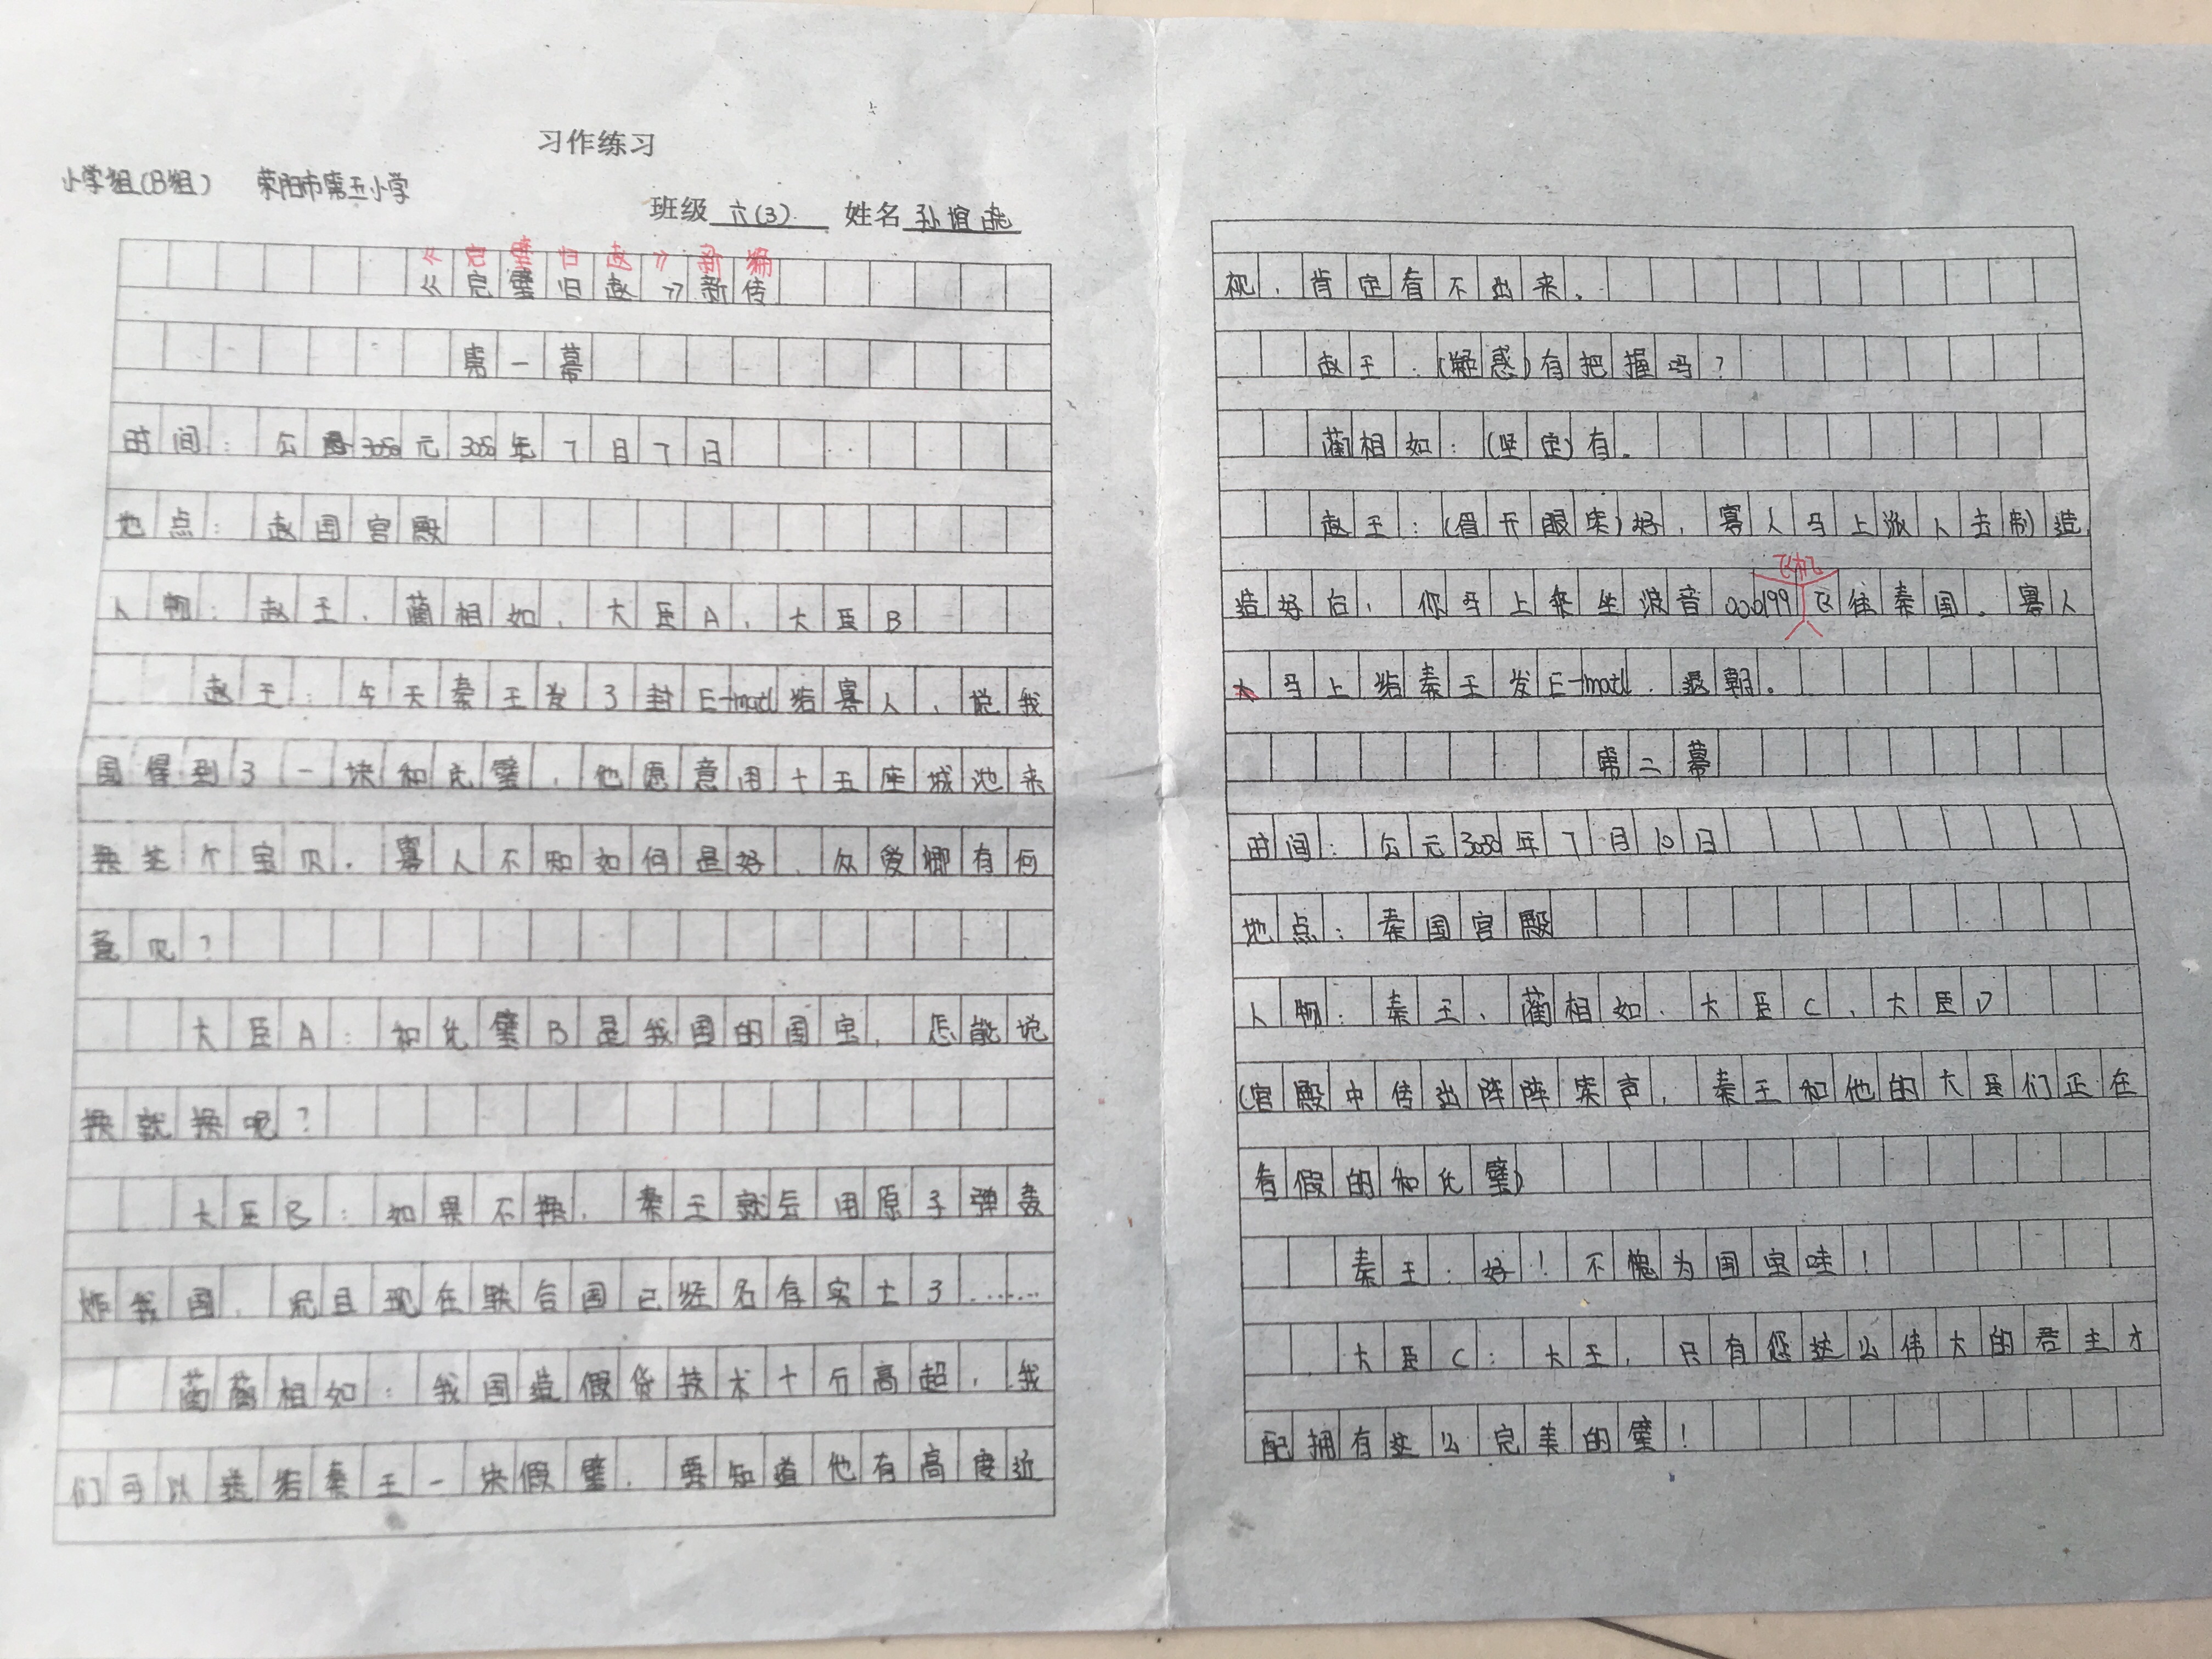 习作练习
小学组(B组) 荥阳市第五小学
班级 六(3) 姓名 孙谊
《完璧归赵》新编
《完璧归赵》新传
第一幕
时间：公元3050年7月7日
地点：赵国宫殿
人物：赵王、蔺相如、大臣A、大臣B
赵王：今天秦王发了封E-mail给寡人，说我
国得到了一块和氏璧，他愿意用十五座城池来
换这个宝贝。寡人不知如何是好，众爱卿有何
意见？
大臣A：和氏璧B是我国的国宝，怎能说
换就换呢？
大臣B：如果不换，秦王就会用原子弹轰
炸我国，况且现在联合国已经名存实亡了……
蔺相如：我国造假货技术十分高超，我
们可以送给秦王一块假璧，要知道他有高度近
视，肯定看不出来。
赵王：(疑惑)有把握吗？
蔺相如：(坚定)有。
赵王：(眉开眼笑)好，寡人马上派人去制造，
造好后，你马上乘坐波音000199飞往秦国。寡人
飞机
马上给秦王发E-mail，退朝。
第二幕
时间：公元3050年7月10日
地点：秦国宫殿
人物：秦王、蔺相如、大臣C、大臣D
(宫殿中传出阵阵笑声，秦王和他的大臣们正在
看假的和氏璧)
秦王：好！不愧为国宝哇！
大臣C：大王，只有您这么伟大的君主才
配拥有这么完美的璧！